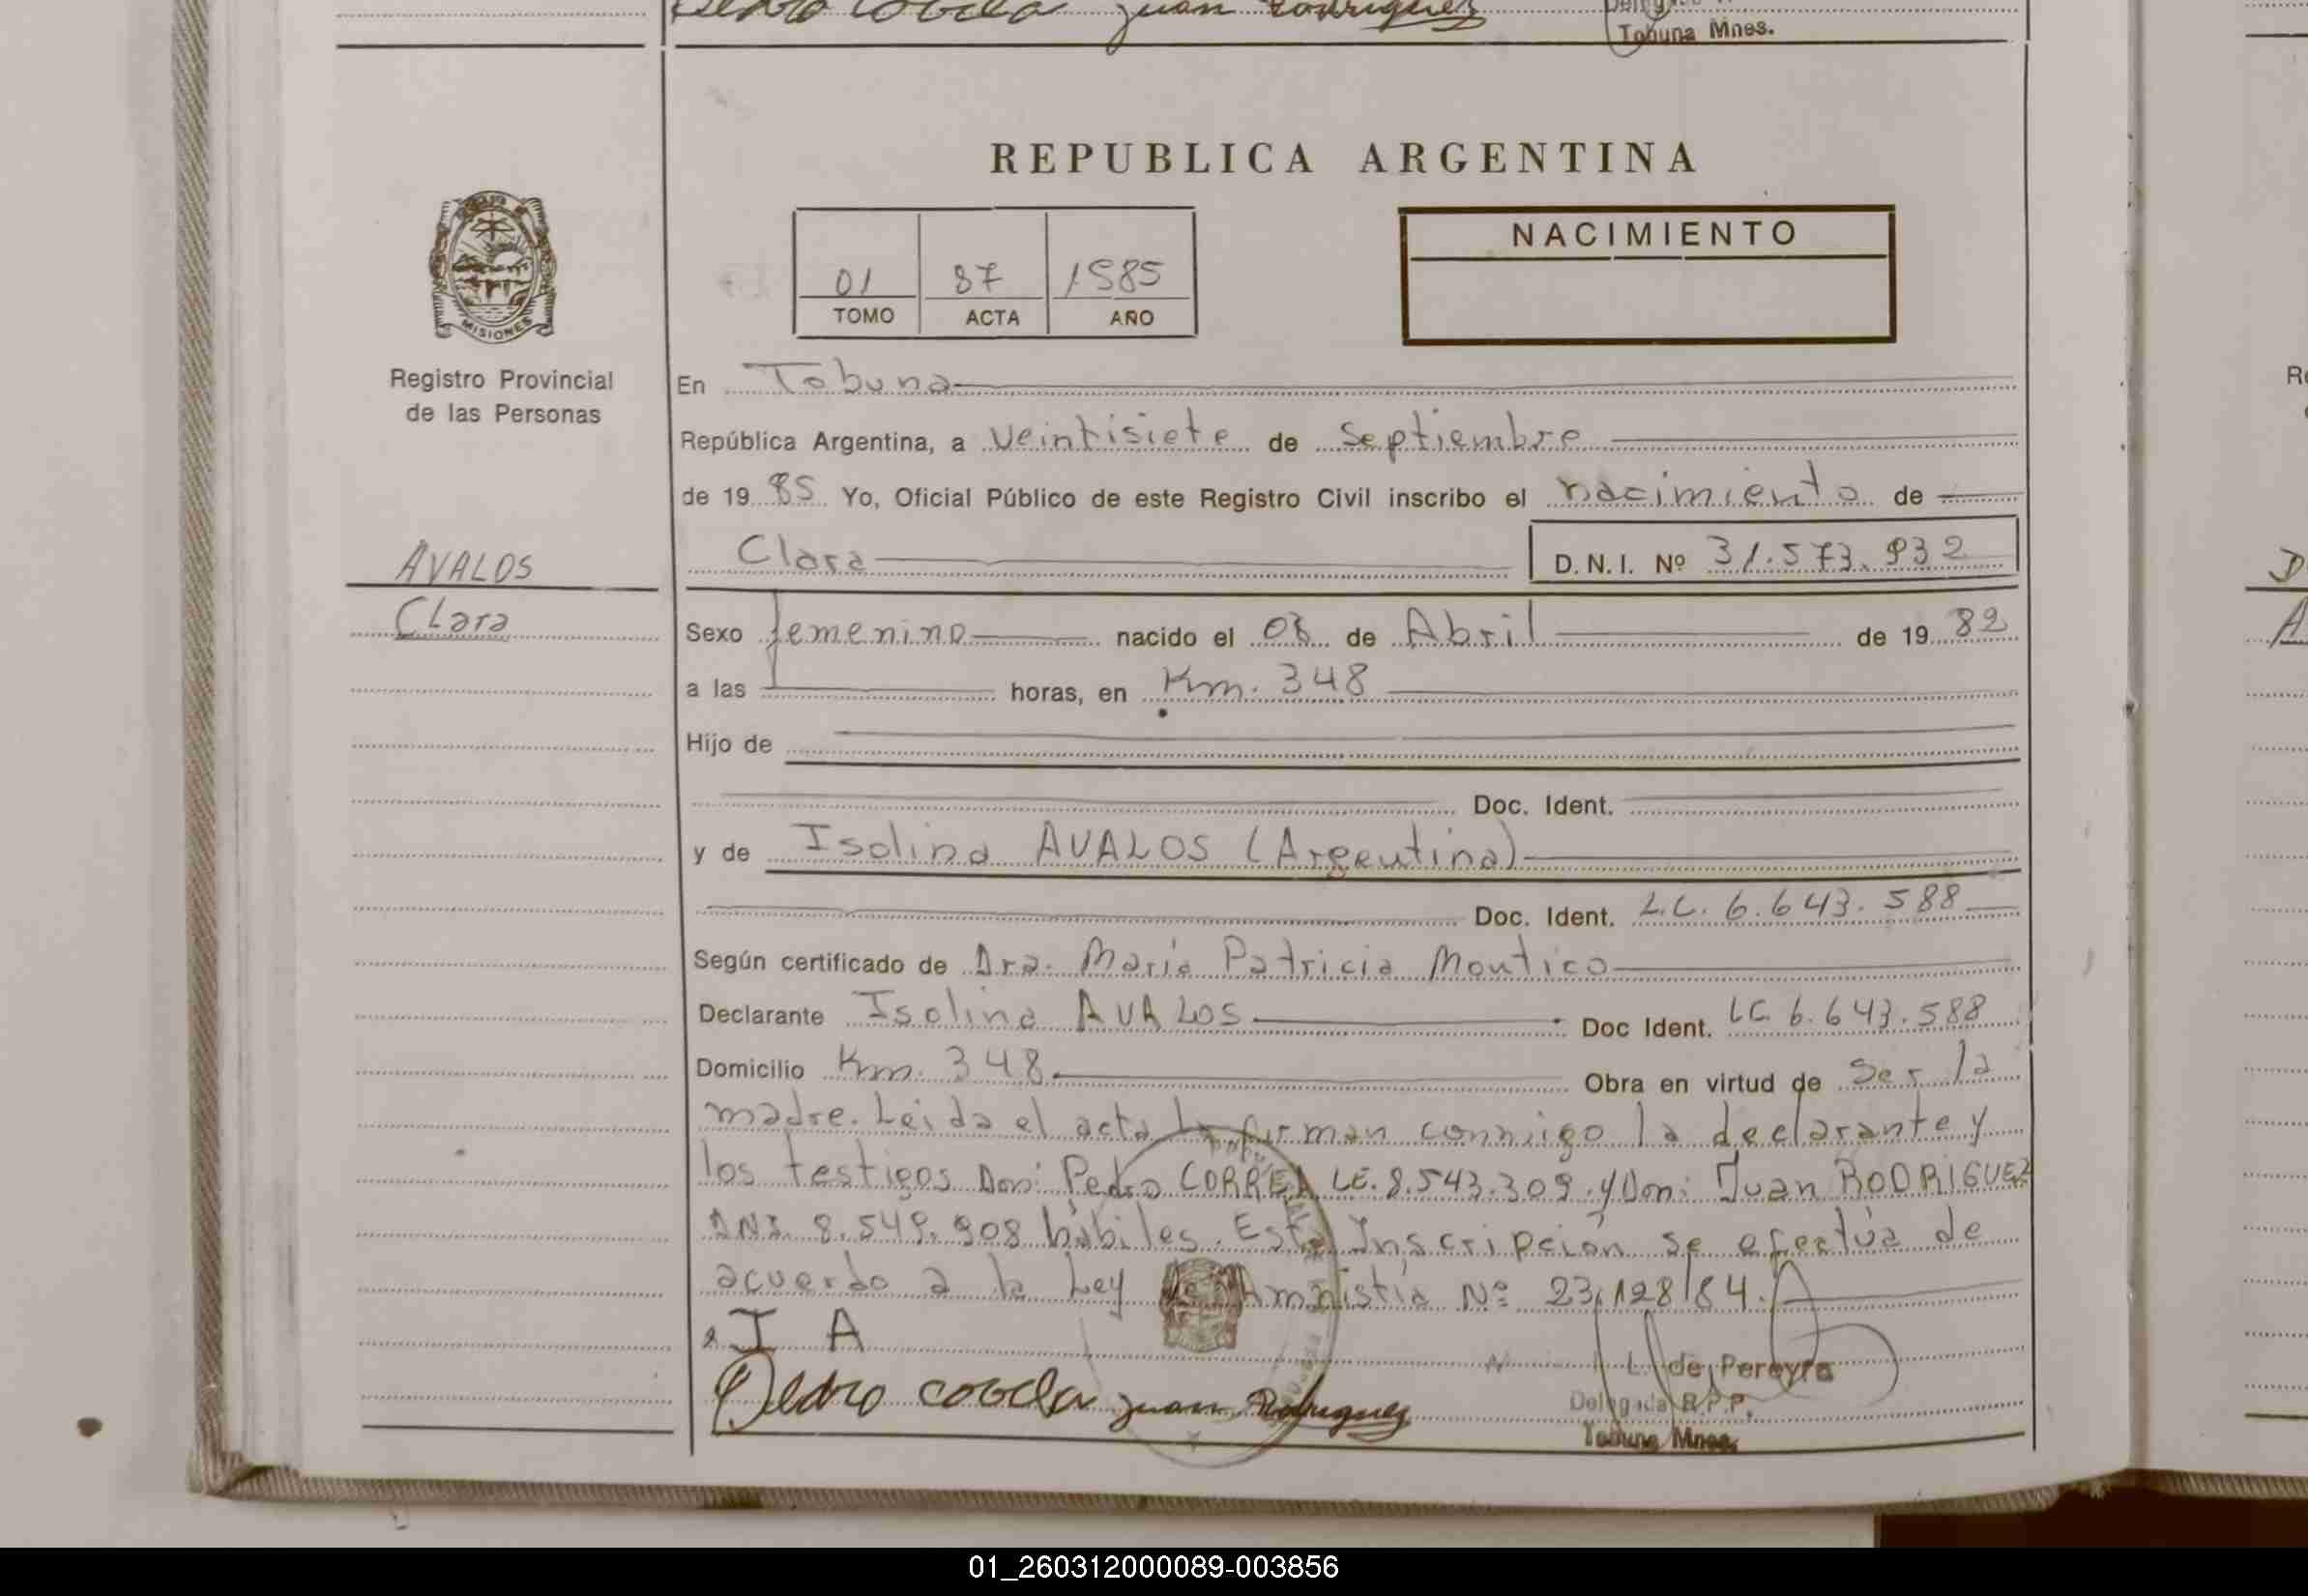 Pedro Juan Rodriguez
Tobuna Mnes.
REPUBLICA ARGENTINA
NACIMIENTO
01 87 1985
TOMO ACTA AÑO
MISIONES
Registro Provincial
de las Personas
En Tobuna
República Argentina, a veintisiete de Septiembre
de 19 85 Yo, Oficial Público de este Registro Civil inscribo el nacimiento de
AVALOS
Clara
Clara D.N.I. Nº 31.573.932
Sexo femenino nacido el 08 de Abril de 19 82
a las horas, en Km. 348
Hijo de
Doc. Ident.
y de Isolina AVALOS (Argentina)
Doc. Ident. L.C. 6.643.588
Según certificado de Dra. María Patricia Montico
Declarante Isolina AVALOS Doc Ident. LC 6.643.588
Domicilio Km. 348 Obra en virtud de ser la
madre. Leida el acta la firman conmigo la declarante y
los testigos Don: Pedro CORREA LE. 8.543.309 y Don: Juan RODRIGUEZ
DNI. 8.549.908 hábiles. Esta Inscripción se efectúa de
acuerdo a la Ley de Amnistía Nº 23.128/84.
I A
Pedro Juan Rodriguez
L. de Pereyra
Delegada R.P.P.
Tobuna Mnes.
01_260312000089-003856